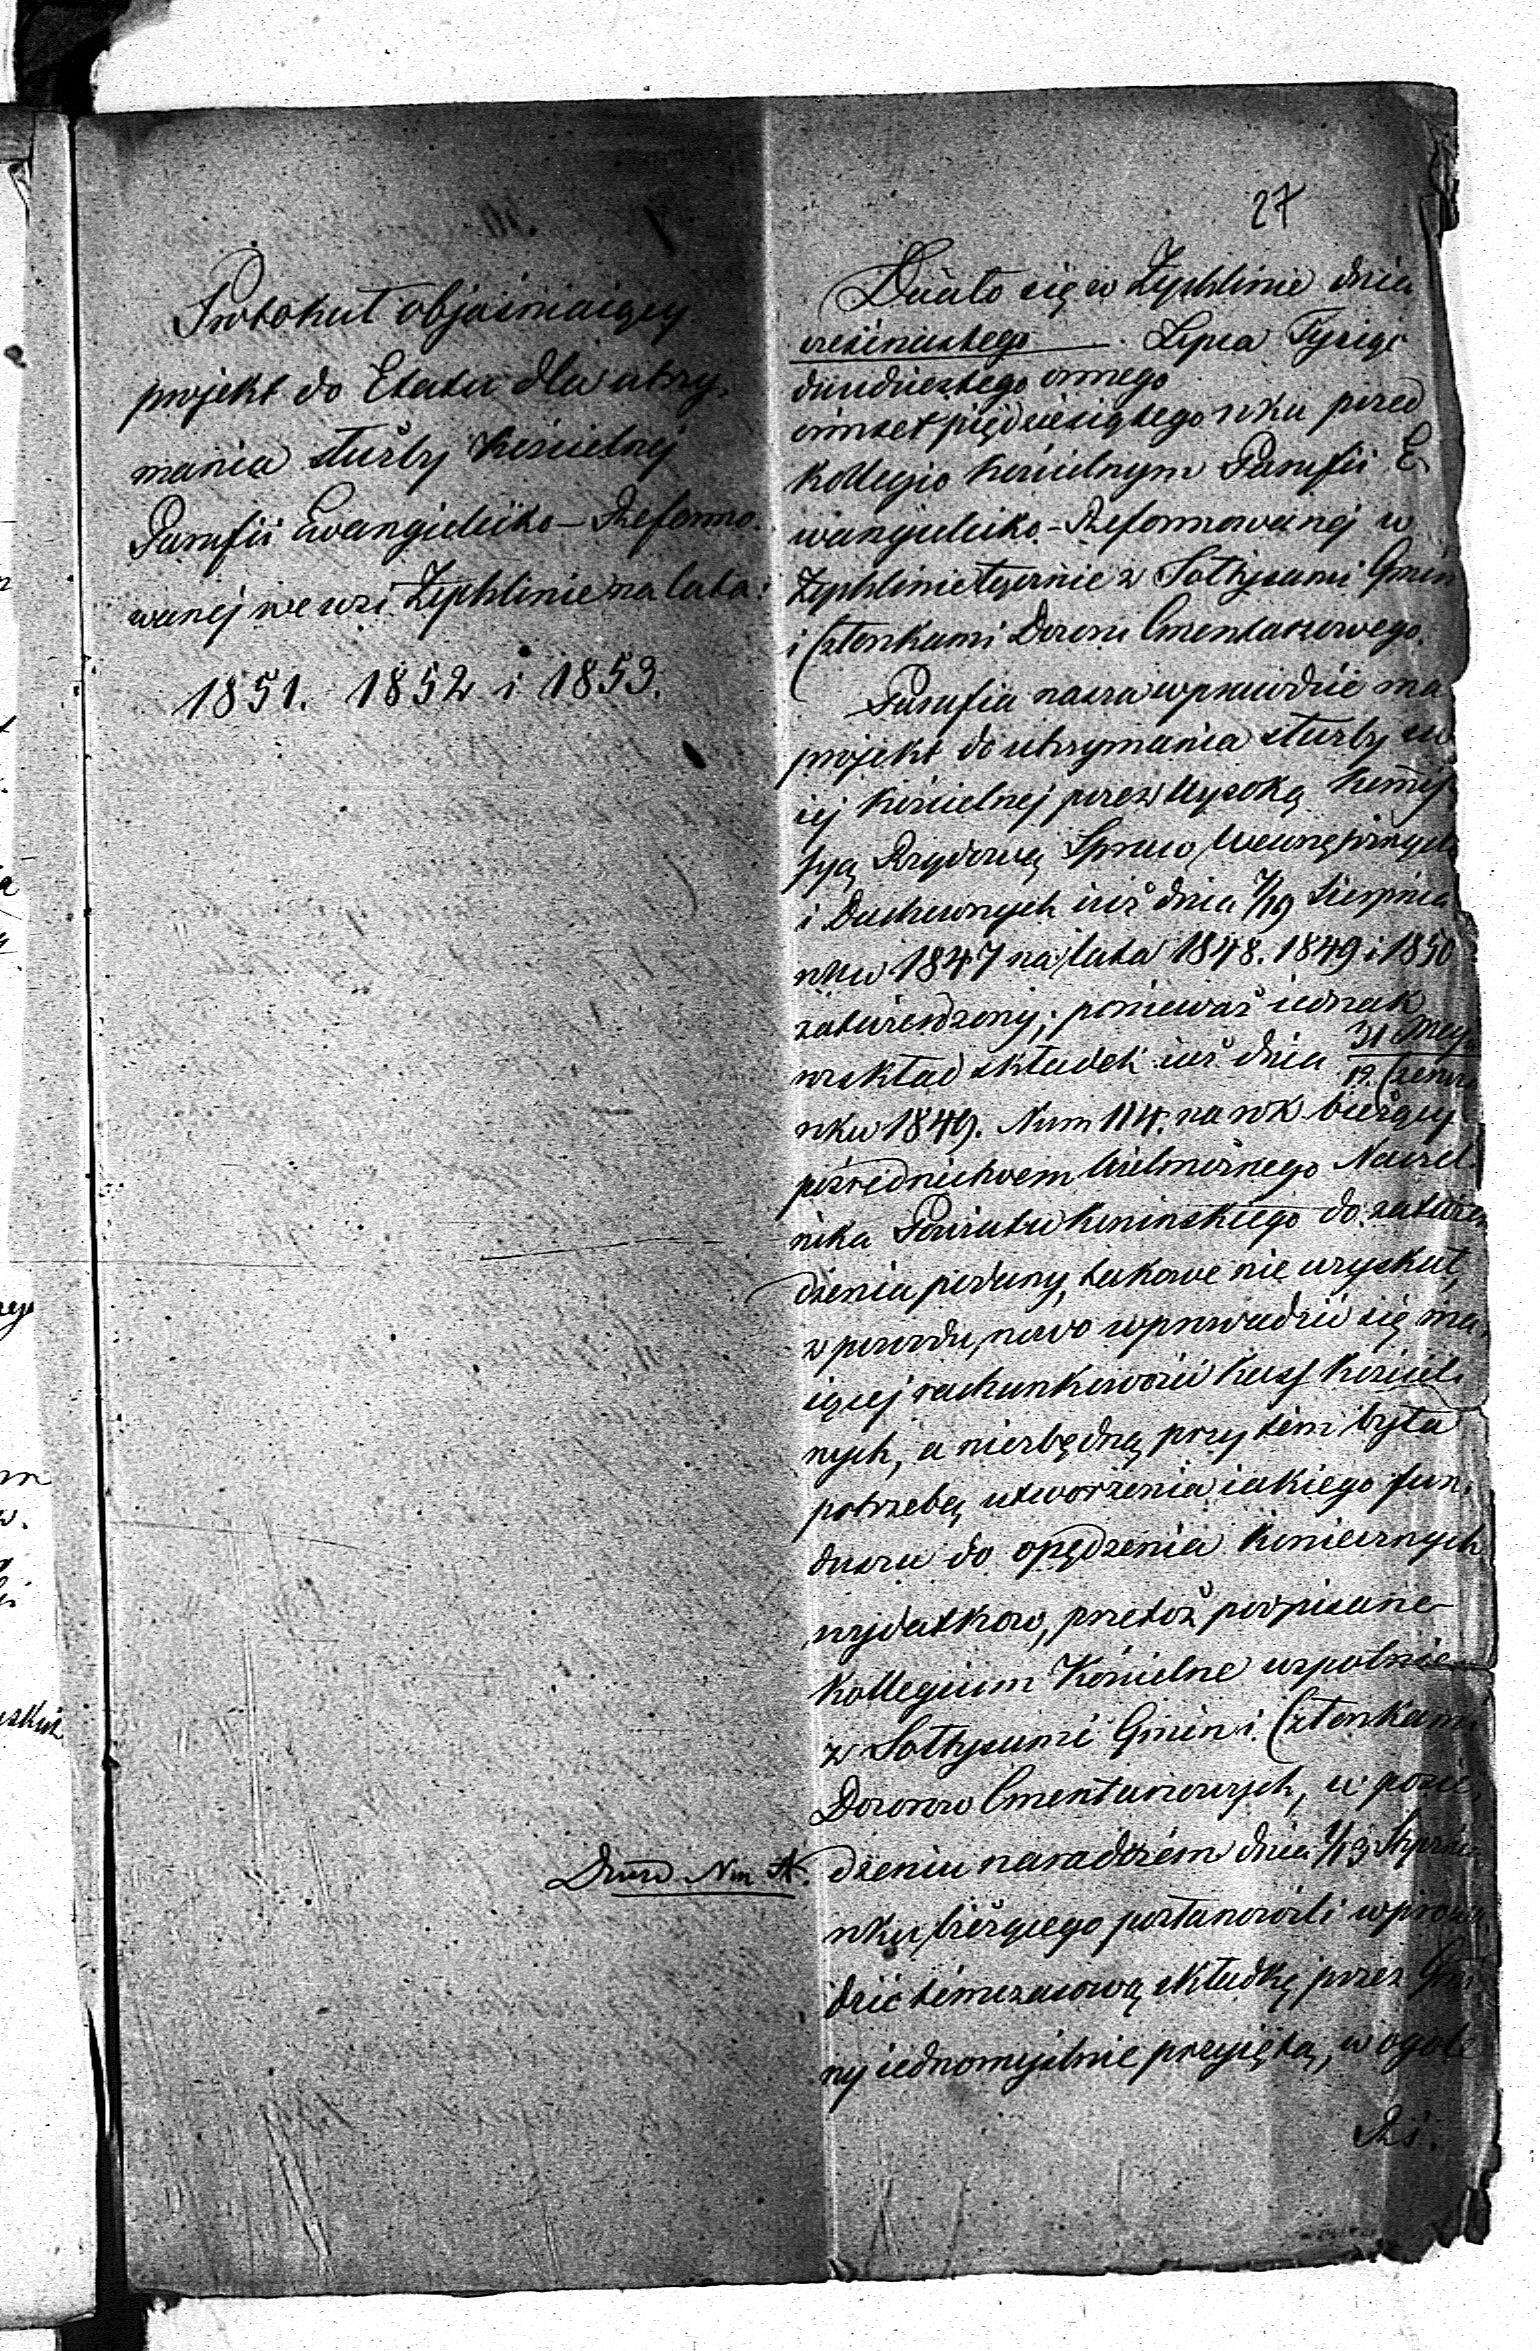 27
Protokuł objasniaiący
projekt do Etatu dla utrzy-
mania służby kościelnej
Parafii Ewangielicko-Reformo-
wanej we wsi Żychlinie na lata:
1851. 1852 i 1853.
Dowod Nm A.
Działo się w Żychlinie dnia
szesnastego Lipca Tysiąc
dwudziestego osmego
osmset pięćdziesiątego roku przed
Kollegio Kościelnym Parafii E-
wangielicko-Reformowanej w
Żychlinie łącznie z Sołtysami Gmin
i Członkami Dozoru Cmentarzowego.
Parafia nasza wprawdzie ma
projekt do utrzymania służby sw
iej Kościelnej przez Wysoką Kommis
syą Rządową Spraw Wewnętrznych
i Duchownych iuż dnia 7/19 Sierpnia
roku 1847 na lata 1848. 1849 i 1850
zatwierdzony; ponieważ iednak
rozkład składek iuż dnia 31 Maj / 12 Czerw
roku 1849. Num 114. na rok bieżący
pośrednictwem Wielmożnego Naczel-
nika Powiatu Konińskiego do zatwier
dzenia podany, takowe nie uzyskał,
z powodu, nowo wprowadzić się ma-
iącej rachunkowości Kass Kościel-
nych, a niezbędną przytem była
potrzebą utworzenia iakiego fun-
duszu do opędzenia koniecznych
wydatkow, przetoż podpisane
Kollegium Kościelne wspolnie
z Sołtysami Gmin i Członkami
Dozorow Cmentarzowych, w posie-
dzeniu naradczem dnia 1/13 Stycznia
roku bieżącego postanowili wprowa
dzić tymczasową składkę przez Gmi
ny iednomyślnie przyiętą, w ogole